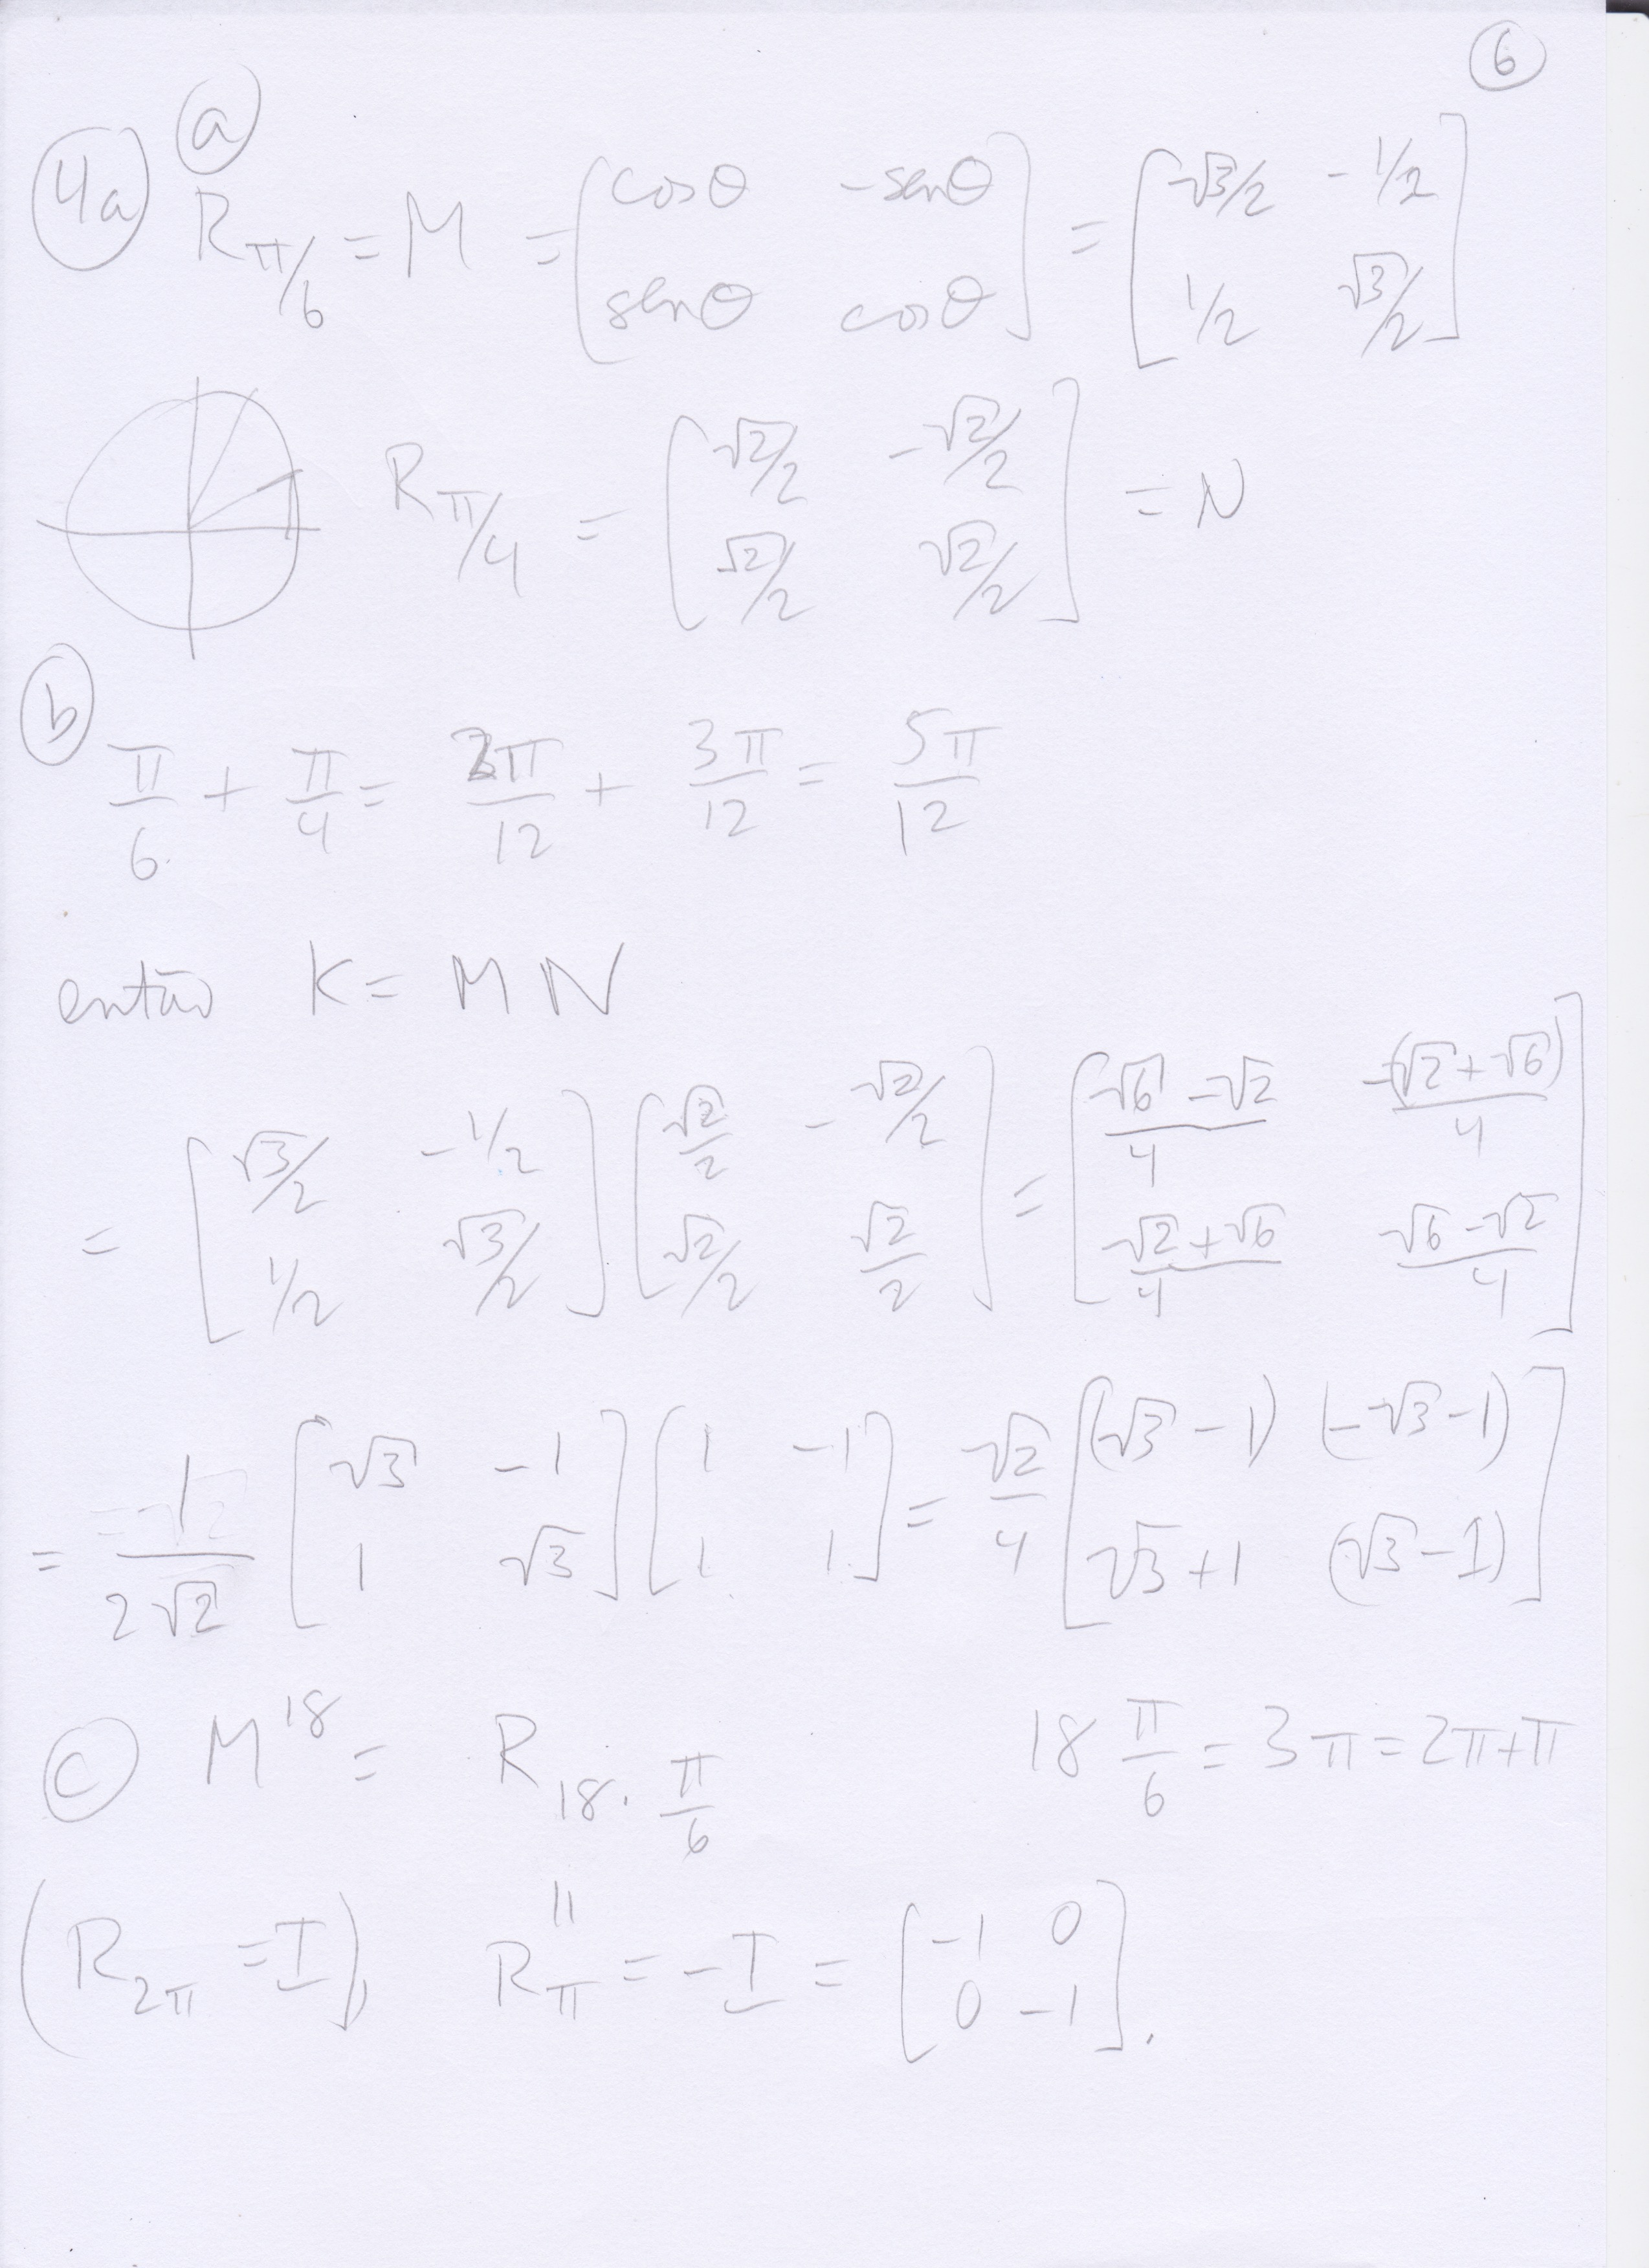 6
4a a
R_{π/6} = M = [cosθ -senθ; senθ cosθ] = [√3/2 -1/2; 1/2 √3/2]
R_{π/4} = [√2/2 -√2/2; √2/2 √2/2] = N
b
π/6 + π/4 = 2π/12 + 3π/12 = 5π/12
então K = MN
= [√3/2 -1/2; 1/2 √3/2] [√2/2 -√2/2; √2/2 √2/2] = [(√6-√2)/4 -(√2+√6)/4; (√2+√6)/4 (√6-√2)/4]
= 1/(2√2) [√3 -1; 1 √3] [1 -1; 1 1] = √2/4 [(√3-1) (-√3-1); √3+1 (√3-1)]
c M^18 = R_{18·π/6} 18 π/6 = 3π = 2π+π
(R_{2π} = I), = R_π = -I = [-1 0; 0 -1].